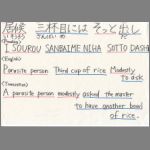 居候 三杯目には そっと出し
(Reading)
I SOUROU SANBAIME NIHA SOTTO DASHI
(English)
Parasite person Third cup of rice Modestly
to ask
(Translation)
A parasite person modestly asked the master
to have another bowl
of rice.